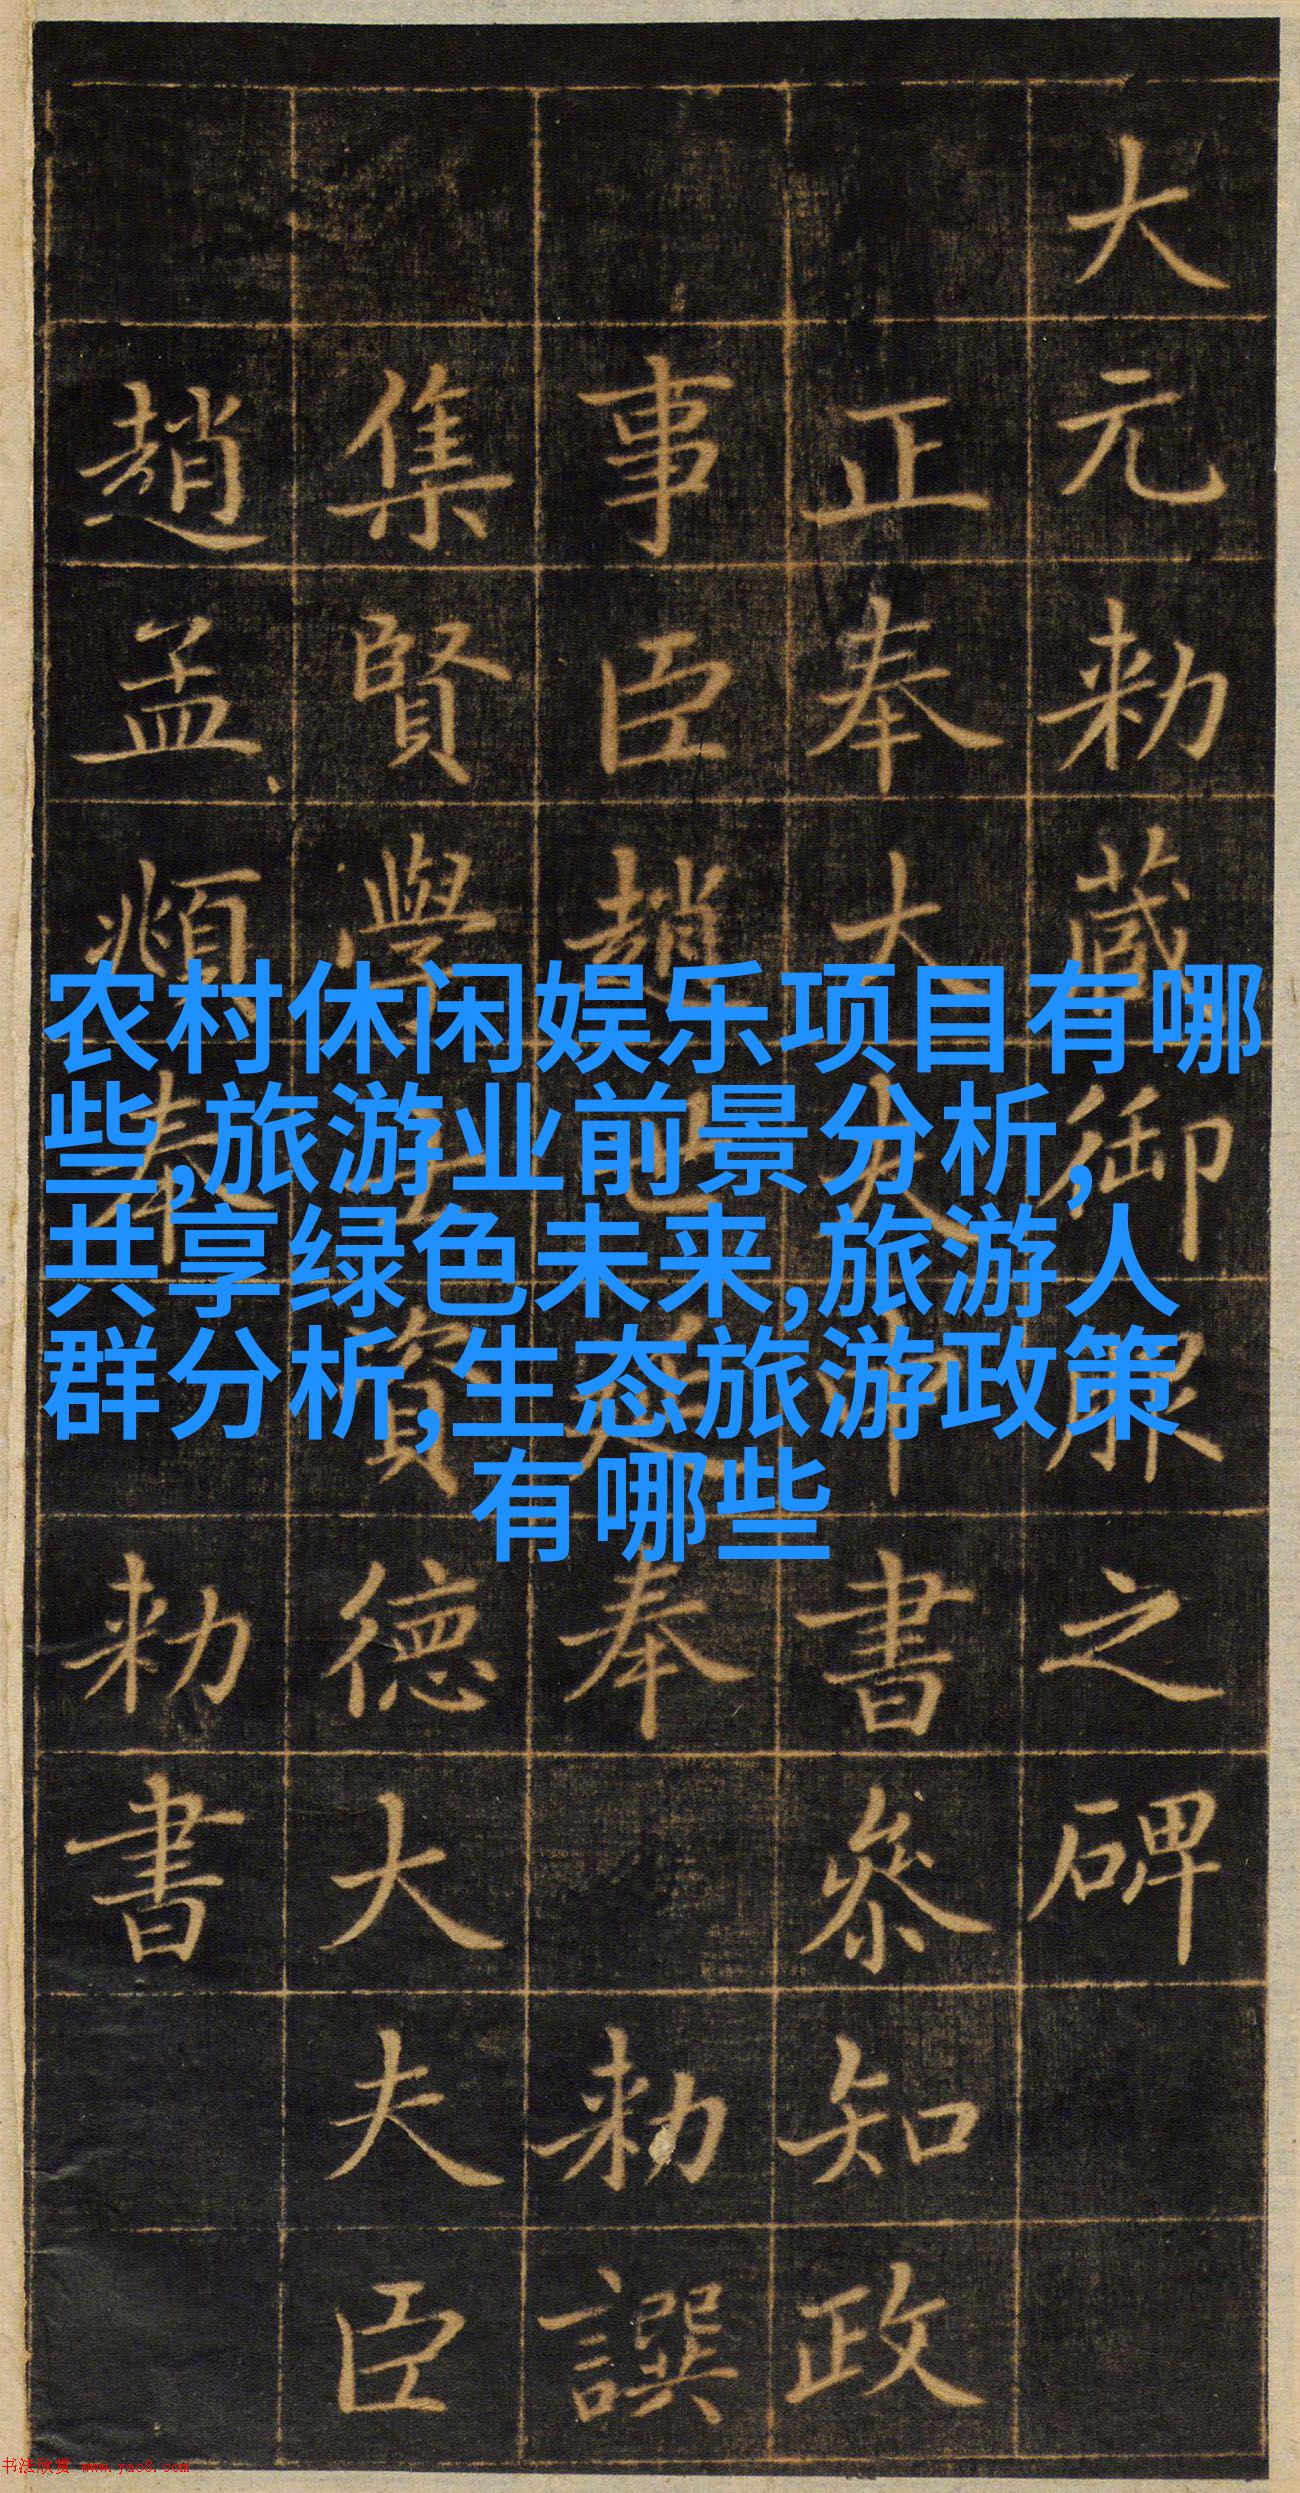 大元勅藏御服之碑
正奉大夫中書叅知政
事臣趙世延奉 勅譔
集賢學士資德大夫臣
趙孟頫奉 勅書
农村休闲娱乐项目有哪
些,旅游业前景分析,
共享绿色未来,旅游人
群分析,生态旅游政策
有哪些
书法欣赏 www.yac8.com